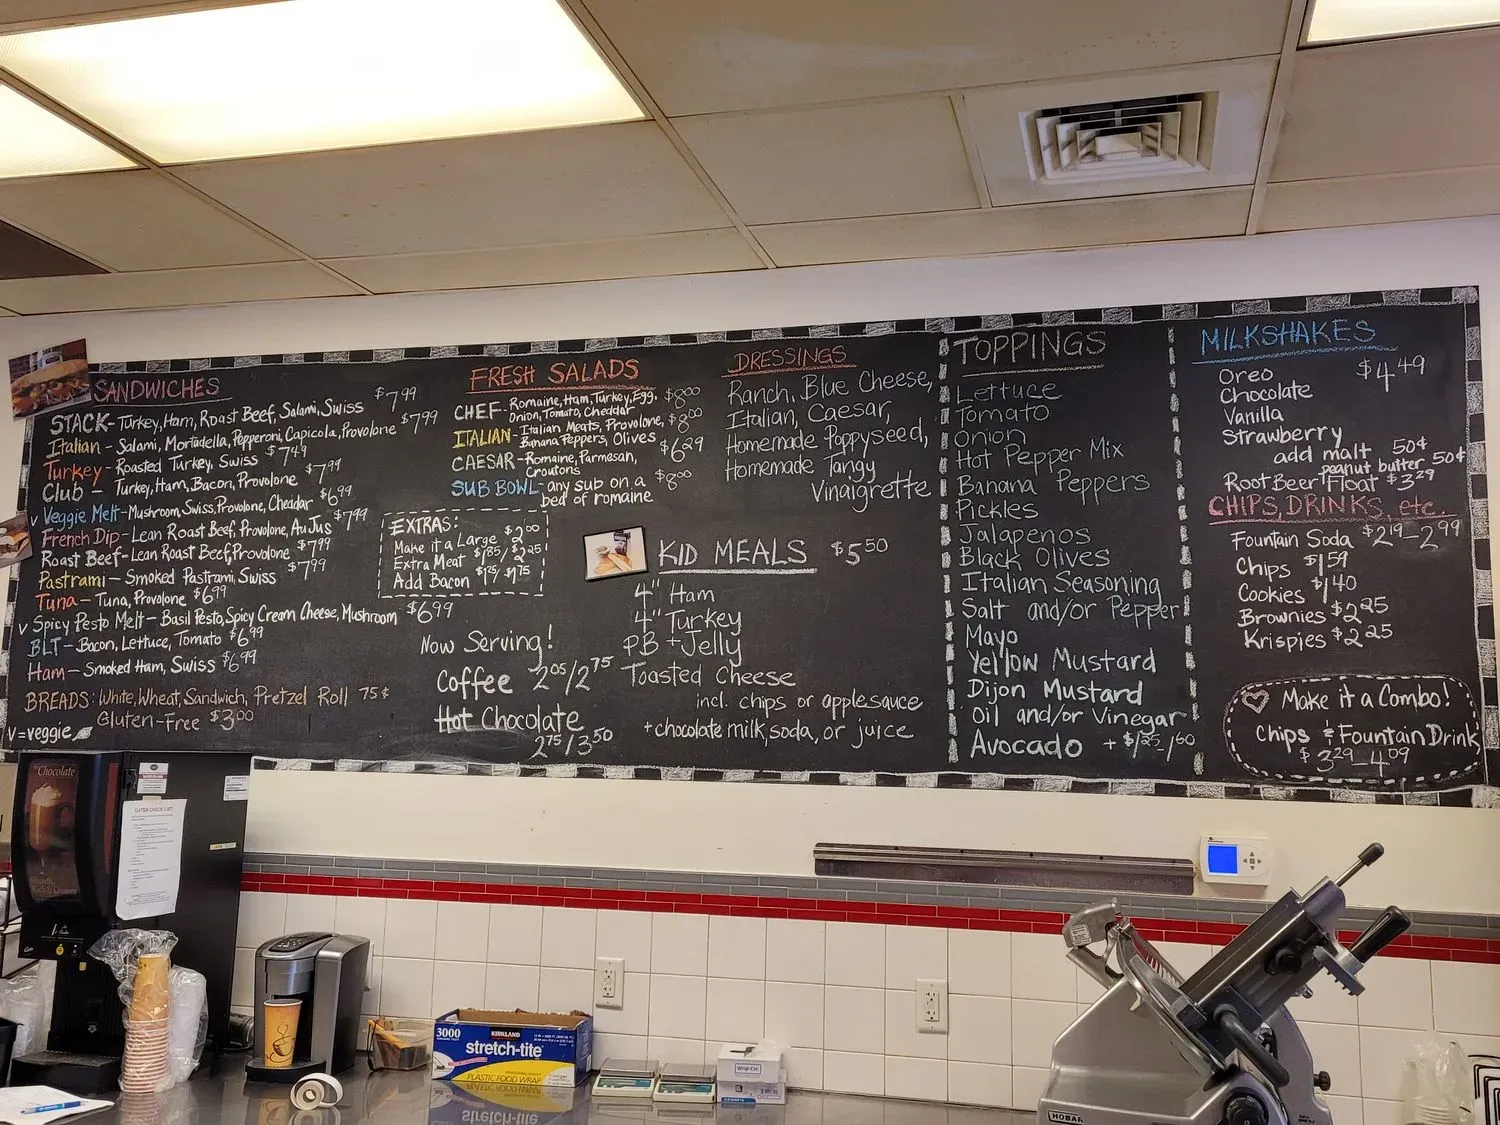 SANDWICHES
STACK- Turkey, Ham, Roast Beef, Salami, Swiss $7.99
Italian - Salami, Mortadella, Pepperoni, Capicola, Provolone $7.99
Turkey - Roasted Turkey, Swiss $7.49
Club - Turkey, Ham, Bacon, Provolone $7.99
v Veggie Melt - Mushroom, Swiss, Provolone, Cheddar $6.99
French Dip - Lean Roast Beef, Provolone, Au Jus $7.99
Roast Beef - Lean Roast Beef, Provolone $7.99
Pastrami - Smoked Pastrami, Swiss $7.99
Tuna - Tuna, Provolone $6.99
v Spicy Pesto Melt - Basil Pesto, Spicy Cream Cheese, Mushroom $6.99
BLT - Bacon, Lettuce, Tomato $6.99
Ham - Smoked Ham, Swiss $6.99
BREADS: White, Wheat, Sandwich, Pretzel Roll 75¢
Gluten-Free $3.00
V=veggie
FRESH SALADS
CHEF- Romaine, Ham, Turkey, Egg, $8.00
Onion, Tomato, Cheddar
ITALIAN- Italian Meats, Provolone, $8.00
Banana Peppers, Olives
CAESAR- Romaine, Parmesan, $6.29
Croutons
SUB BOWL- any sub on a $8.00
bed of romaine
EXTRAS:
Make it a Large $2.00
Extra Meat $1.85/$2.25
Add Bacon $1.25/$1.75
Now Serving!
Coffee 2.05/2.75
Hot Chocolate
2.75/3.50
DRESSINGS
Ranch, Blue Cheese,
Italian, Caesar,
Homemade Poppyseed,
Homemade Tangy
Vinaigrette
KID MEALS $5.50
4" Ham
4" Turkey
PB + Jelly
Toasted Cheese
incl. chips or applesauce
+ chocolate milk, soda, or juice
TOPPINGS
Lettuce
Tomato
Onion
Hot Pepper Mix
Banana Peppers
Pickles
Jalapenos
Black Olives
Italian Seasoning
Salt and/or Pepper
Mayo
Yellow Mustard
Dijon Mustard
Oil and/or Vinegar
Avocado + $1.25-1.60
MILKSHAKES
Oreo $4.49
Chocolate
Vanilla
Strawberry
add malt 50¢
peanut butter 50¢
Root Beer Float $3.29
CHIPS, DRINKS, etc.
Fountain Soda $2.19-2.99
Chips $1.59
Cookies $1.40
Brownies $2.25
Krispies $2.25
Make it a Combo!
Chips & Fountain Drink
$3.29-4.09
Chocolate
CATER CHECK LIST
3000
KIRKLAND
stretch-tite
PLASTIC FOOD WRAP
HOBART